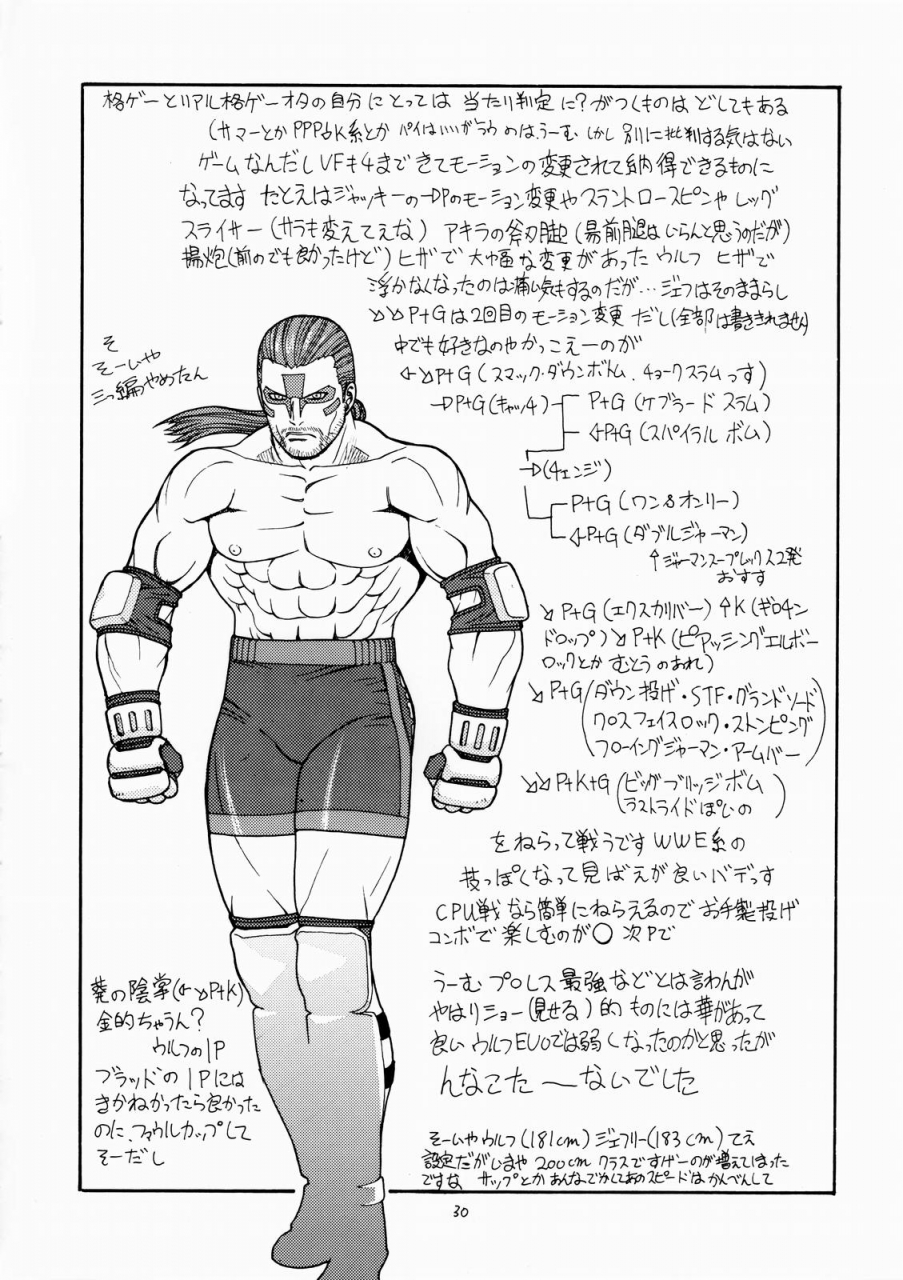 格ゲーとリアル格ゲーオタの自分にとっては 当たり判定に?がつくものは どしてもある
(サマーとか PPP△K系とか パイはいいが ラウ めは、うーむ しかし 別に批判する気はない
ゲームなんだし VFキ4まできてモーションの変更されて納得できるものに
なってます たとえはジャッキーの→DPのモーション変更や スラントロースピンや レッグ
スライサー (サラも変えてえな) アキラの斧刃脚 (昜前腿はいらんと思うのだが)
揚炮(前のでも良かったけど) ヒザで 大幅な変更があった ウルフ ヒザで
浮かなくなったのは痛い気もするのだが… ジェフはそのままらし
↘↘P+Gは2回目のモーション変更 だし(全部は書ききれません)
中でも好きなのやかっこえーのが
←↘P+G (スマック・ダウンボトム、チョークスラムっす)
→DP+G (キャッ4) P+G (ケブラード スラム)
←P+G (スパイラル ボム)
→(4ェンジ)
P+G (ワン&オンリー)
←P+G (ダブルジャーマン)
↑ジャーマンスープレックス2発
おすす
↘P+G (エクスカリバー) ↑K (ギロキン
ドロップ) ↘P+K (ピアッシングエルボー
ロックとか むとうの あれ)
↘P+G (ダウン投げ・STF・グランドソード
クロスフェイスロック・ストンピング
フローイングジャーマン・アームバー)
↘↘P+K+G (ビッグブリッジボム
ラストライドぽいの)
をねらって戦うです WWE系の
技っぽくなって見ばえが良いバデっす
CPU戦なら簡単にねらえるので お手製投げ
コンボで楽しむのが○ 次Pで
うーむ プロレス最強などとは言わんが
やはりショー(見せる)的ものには華があって
良い ウルフEVOでは弱くなったのかと思ったが
んなこた〜ないでした
そーいやウルフ(181cm) ジェフリー(183cm)てえ
設定だがいまや200cmクラスですげーのが増えてしまった
ですな サップとか あんなでかしてあのスピードはかんべんして
そ
そーいや
三つ編やめたん
葵の陰掌(←↘P+K)
金的ちゃうん?
ウルフの1P
ブラッドの1Pには
きかねかったら良かった
のに、ファウルカップして
そーだし
30